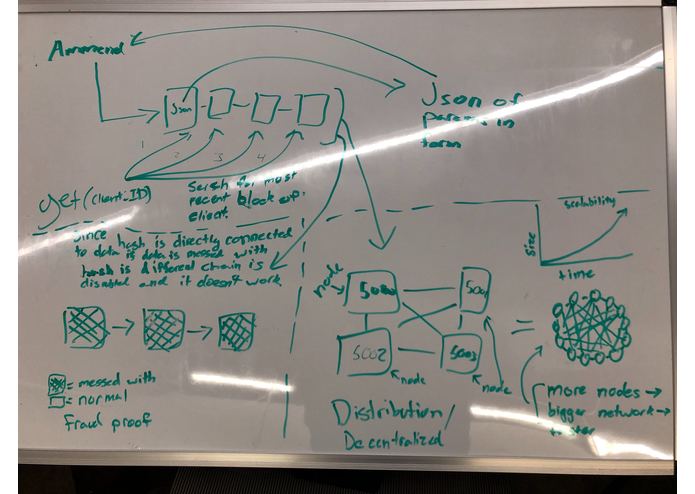 Ammend
Json
Json of
in
1 2 3 4
get(client_ID)
Search for most
recent block
client
Since
hash is directly connected
to data if data is messed with
hash is different chain is
disabled and it doesn't work
= messed with
= normal
Fraud proof
node
5001
5002
5003
node
node
Distribution/
Decentralized
scalability
Size
time
=
more nodes →
bigger network →